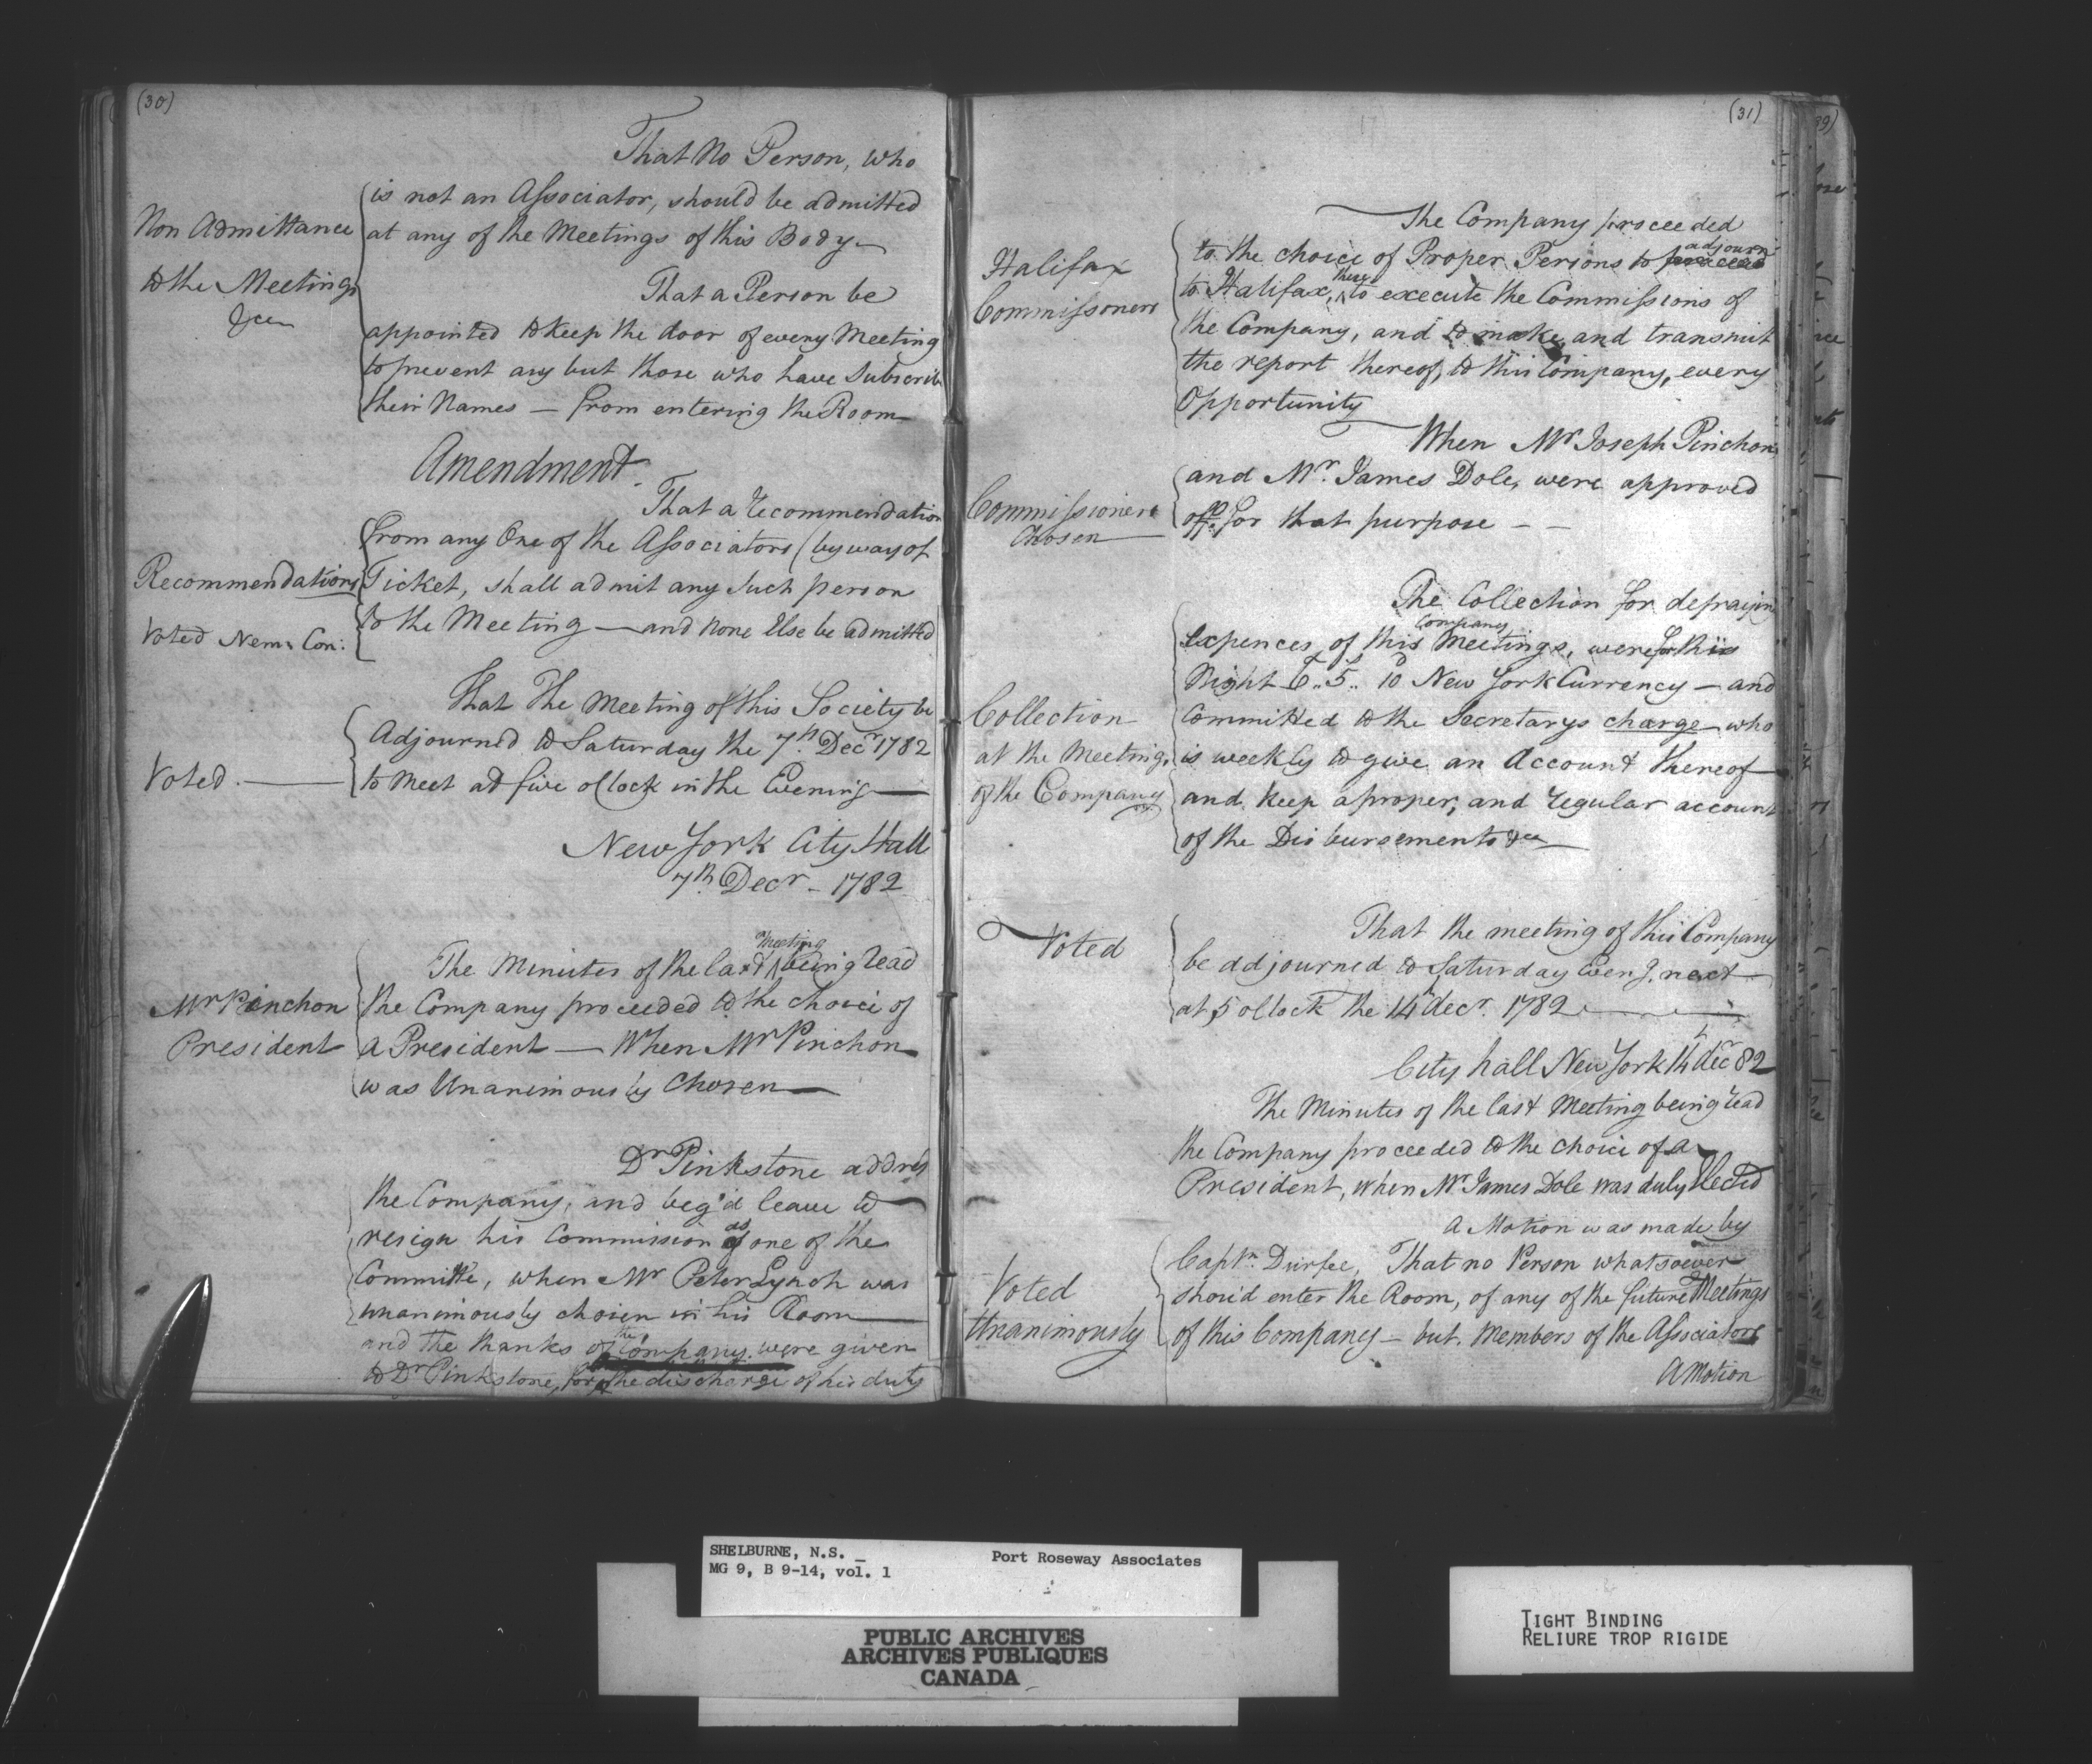 (30)
That No Person, who
is not an Associator, should be admitted
Non Admittance
at any of the Meetings of this Body
to the Meetings
&ce
That a Person be
appointed to keep the door of every Meeting
to prevent any but those who have Subscrib
their Names — from entering the Room
Amendment
That a recommendation
from any One of the Associators (by way of
Recommendations
Ticket, shall admit any such person
to the Meeting — and none Else be admitted
Voted Nem: Con:
That The Meeting of this Society be
Adjourned to Saturday the 7th. Decr 1782
Voted.
to meet at five oClock in the Evening
New York City Hall
7th Decr - 1782
The Minutes of the last Meeting being read
Mr Pinchon
the Company proceeded to the choice of
President
a President — When Mr Pinchon
was Unanimously Chosen
Dr Pinkstone addres
the Company, and beg'd leave to
resign his Commission as one of the
Committe, when Mr Peter Lynch was
unanimously chosen in his Room
and the thanks of the Company were given
to Dr Pinkstone, for the discharge of his duty
(31)
39)
The Company proceeded
to the choice of Proper Persons to proceed adjourn
Halifax
Commissioners
to Halifax, there to execute the Commissions of
the Company, and to make and transmit
the report thereof, to this Company, every
Opportunity
When Mr Joseph Pinchon
and Mr. James Dole, were approved
Commissioners
Chosen
off for that purpose - -
The Collection for defraijng
expences of this Company Meetings, were for this
Night £.. 5.. 10 New York Currency — and
Collection
at the Meetings
of the Company
Committed to the Secretarys charge — who
is weekly to give an Account thereof
and keep a proper, and regular account
of the Disbursements &ce
That the meeting of this Company
Voted
be adjourned to Saturday Eveng. next
at 5 oClock the 14th decr. 1782
City hall New York 14th decr 82
The Minutes of the last Meeting being read
the Company proceeded to the choice of a
President, when Mr James Dole was duly Elected
A Motion was made by
Captn. Durfee, That no Person whatsoever
Voted
Unanimously
shou'd enter the Room, of any of the future Meetings
of this Company — but. Members of the Associators
A Motion
SHELBURNE, N.S. _
MG 9, B 9-14, vol. 1
Port Roseway Associates
PUBLIC ARCHIVES
ARCHIVES PUBLIQUES
CANADA
TIGHT BINDING
RELIURE TROP RIGIDE